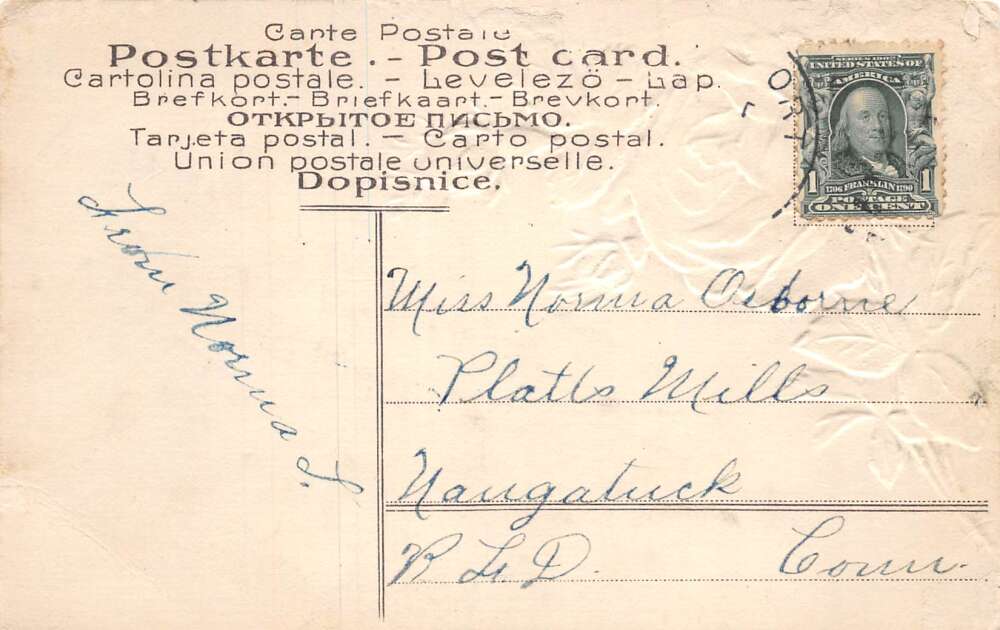 Carte Postale
Postkarte. - Post card.
Cartolina postale. - Levelezö - Lap.
Brefkort.- Briefkaart.- Brevkort.
ОТКРЫТОЕ ПИСЬМО.
Tarjeta postal. - Carto postal.
Union postale universelle.
Dopisnice.
SERIES 1902
UNITED STATES OF
AMERICA
1 1706 FRANKLIN 1790 1
POSTAGE
ONE CENT
From Norma L.
Miss Norma Osborne
Platts Mills
Naugatuck
R F D. Conn.